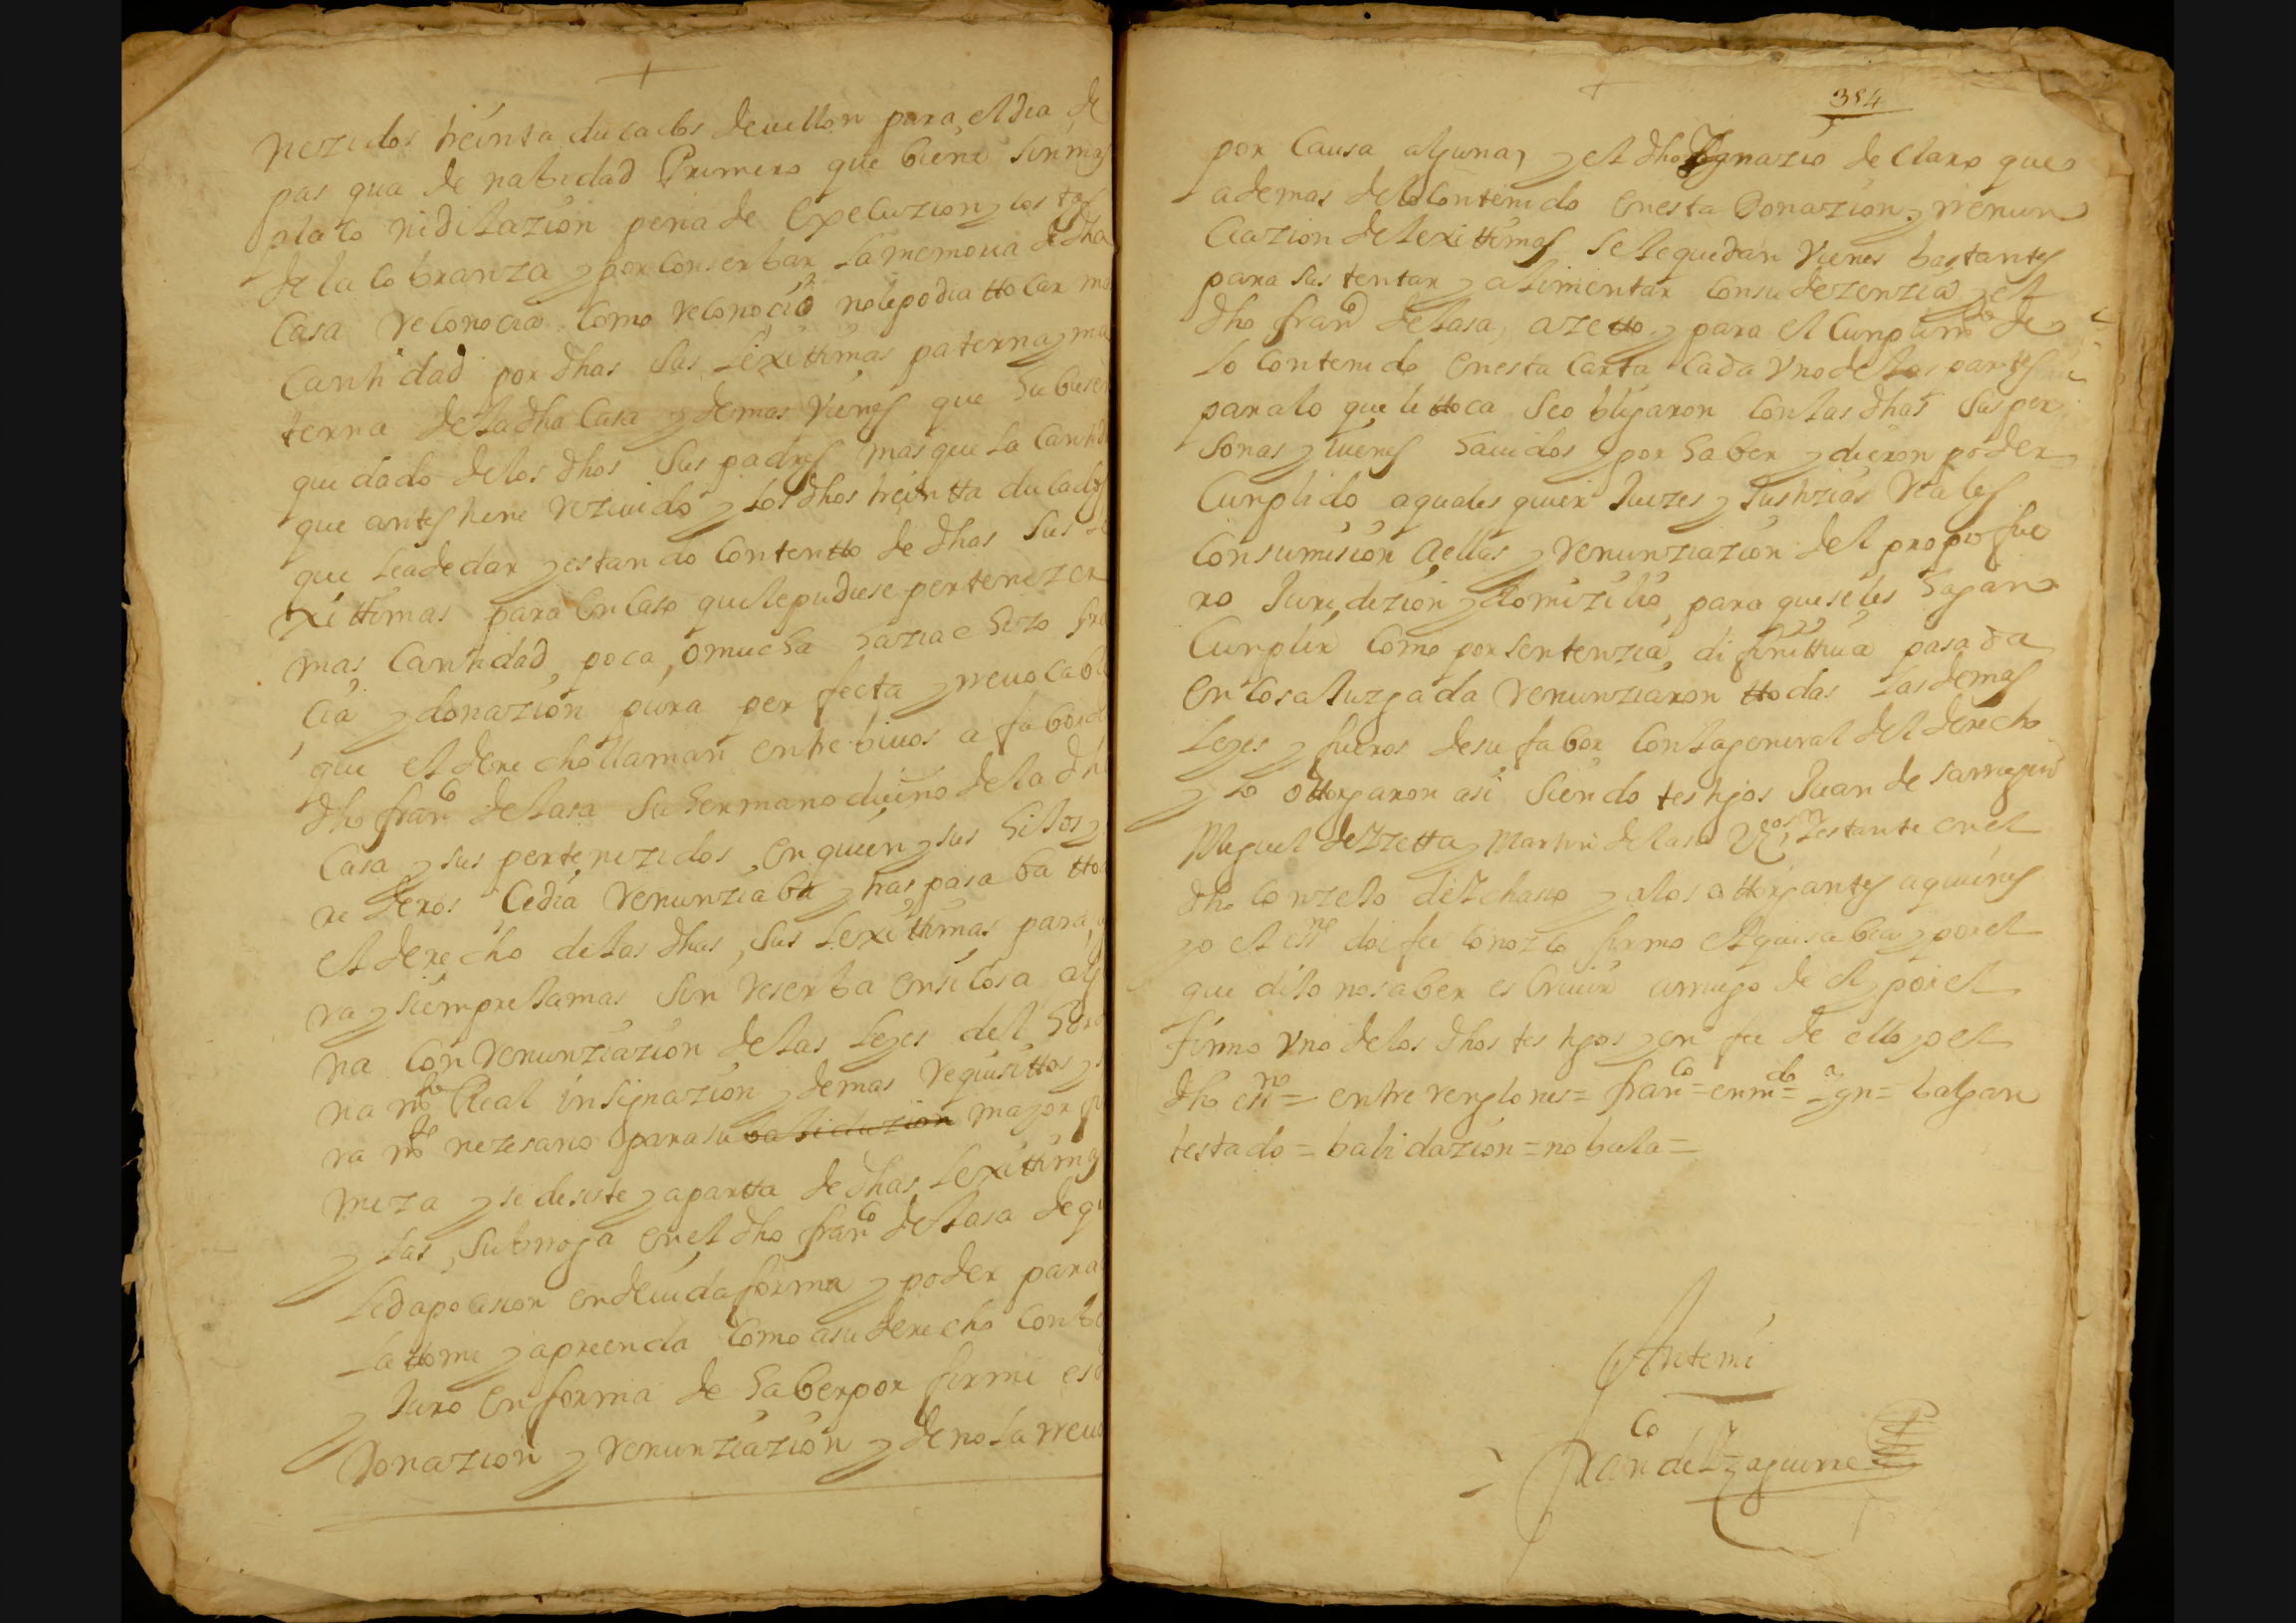 nezidos treinta ducados de vellon para el dia de
pasqua de nabidad Primero que biene sin mas
plazo ni dilazion pena de execuzion y costas
de la cobranza y por conserbar la memoria de dha
Casa reconocia como reconoció no le podia ttocar mas
Cantidad por dhas sus lexittimas paterna y ma
terna de la dha Casa y demas vienes que hubiesen
quedado de los dhos sus padres mas que la cantidad
que antes tiene reziuido y los dhos treintta ducados
que le a de dar y estando contentto de dhas sus le
xittimas para en caso que le pudiese pertenezer
mas cantidad, poca, o mucha hazia e hizo gra
cia y donazion pura perfecta yrreuocable
que el derecho llaman entre biuos a fabor del
dho franco de lasa su hermano dueño de la dha
Casa y sus pertenezidos, en quien y sus hijos y
rederos Cedia renunziaba y traspasaba tto
el derecho de las dhas sus lexittimas para
ra y siempre jamas sin reserba en si cosa algu
na con renunziazion de las leyes del
na mto Real insignazion y demas requisittos y
ra mto nezesario para su balidazion mayor fir
meza y se desiste y apartta de dhas lexittimas
y las subrroga en el dho franco de lasa de qe
le da posesion en deuida forma y poder para
la ttome y apreenda como a su derecho conbe
y Juro en forma de haber por firme esta
Donazion y renunziazion y de no la rreuo
354
por causa alguna, y el dho Ygnazio declaro que
ademas de lo contenido en esta Donazion y rrenun
ciazion de lexittimas se le quedan vienes bastantes
para sustentar y alimentar con su dezenzia y el
dho franco de lasa, azetto y para el cumplimto de
lo contenido en esta carta cada vno de las partes
para lo que le ttoca se obligaron con las dhas sus per
sonas y vienes hauidos y por haber y dieron poder
Cumplido a qualesquier Juezes y Justizias reales
con sumision a ellas y renunziazion del propio fue
ro Juridizion y domizilio, para que se les hagan
Cunplir como por sentenzia, difinittiua pasada
en cosa Juzgada renunziaron ttodas las demas
leyes y fueros de su fabor con la general del derecho
y lo ottorgaron asi siendo testigos Juan de
Miguel de Yzetta y Martin de lasa Vos y estante en el
dho conzejo de Ychaso y a los ottorgantes a quienes
yo el essno doi fee conozco firmo el que sabia y por el
que dijo no saber escriuir a rruego de el y por el
firmo vno de los dhos testigos y en fee de ello yo el
dho essno = entre renglones = franco = enmdo = Ygn = balgan
testado = balidazion = no bala =
Ante mi
Franco de Yzaguirre